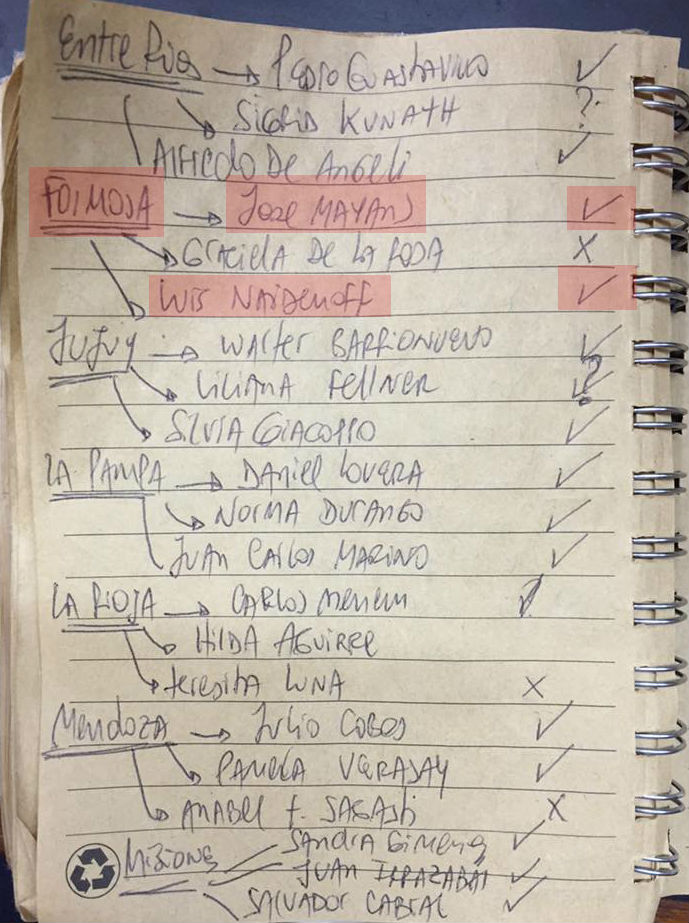 Entre Rios → Pedro Guastavino ✓
Sigrid Kunath ?
Alfredo De Angeli ✓
Formosa → Jose Mayans ✓
Graciela De La Rosa X
Luis Naidenoff ✓
Jujuy → Walter Barrionuevo ✓
Liliana Fellner ?
Silvia Giacoppo ✓
La Pampa → Daniel Lovera ✓
Norma Durango ✓
Juan Carlos Marino ✓
La Rioja → Carlos Menem
Hilda Aguirre
Teresita Luna X
Mendoza → Julio Cobos ✓
Pamela Verasay ✓
Anabel F. Sagasti X
Sandra Gimenez ✓
Misiones Juan Irrazabal ✓
Salvador Cabral ✓